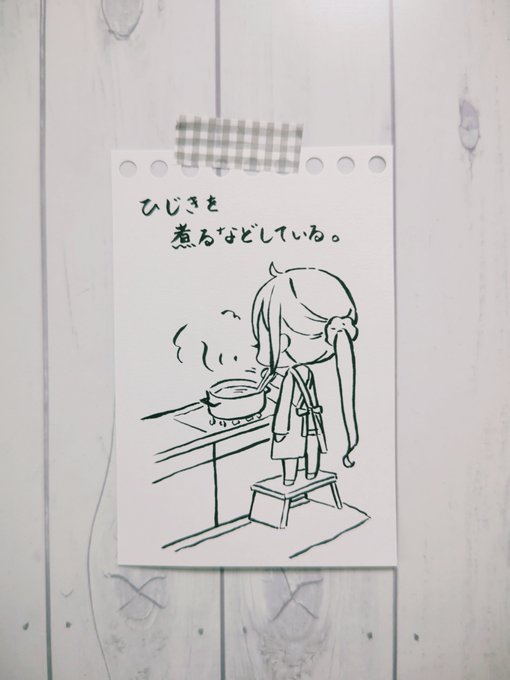 ひじきを
煮るなどしている。